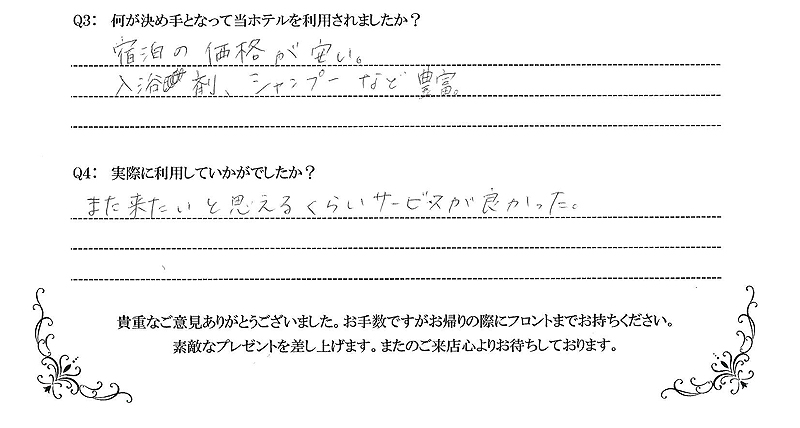 Q3： 何が決め手となって当ホテルを利用されましたか？
宿泊の価格が安い。
入浴剤、シャンプーなど豊富。
Q4： 実際に利用していかがでしたか？
また来たいと思えるくらいサービスが良かった。
貴重なご意見ありがとうございました。お手数ですがお帰りの際にフロントまでお持ちください。
素敵なプレゼントを差し上げます。またのご来店心よりお待ちしております。